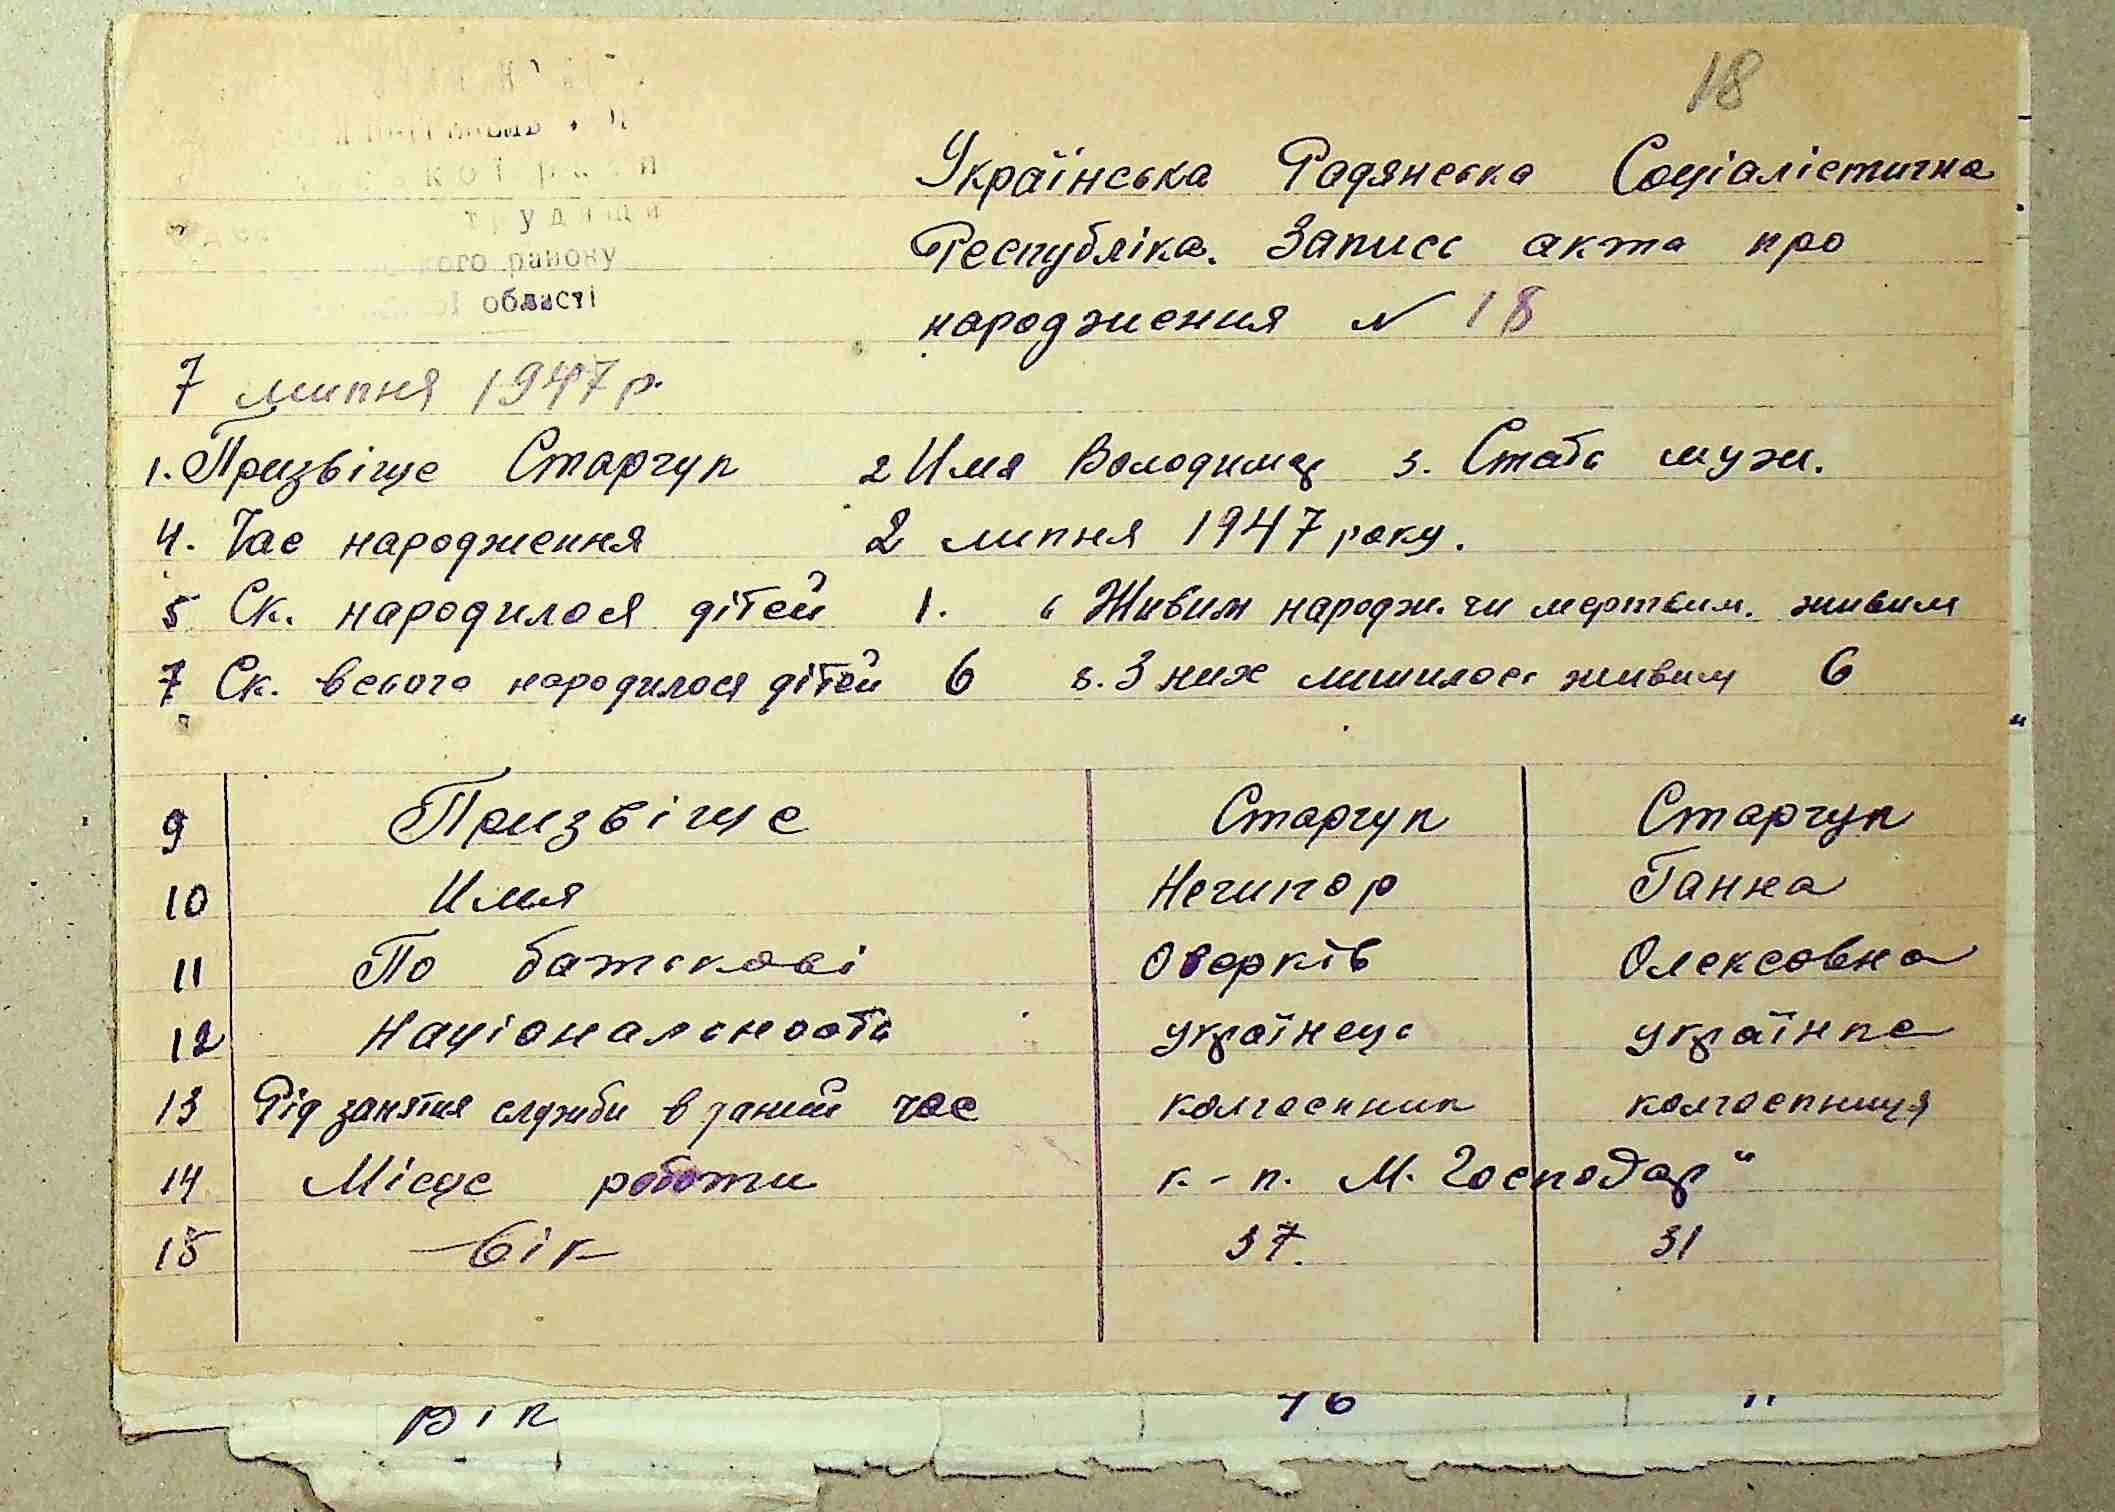 18
Українська Радянська Соціалістична
Республіка. Запись акта про
народження N 18
трудящи
кого району
області
7 липня 1947 р.
1. Призвіще Старчук 2 Имя Володимир 3. Стать муж.
4. Час народження 2 липня 1947 року.
5 Ск. народилося дітей 1. 6 Живим народж. чи мертвим. живим
7 Ск. всього народилося дітей 6 8. З них лишилось живим 6
9 Призвіще Старчук Старчук
10 Имя Нечипор Ганна
11 По батькові Оверків Олексовна
12 Національность українець українка
13 Рід заняття служби в даний час колгоспник колгоспниця
14 Місце роботи к-п. М. Господар"
15 Вік 37. 31
Вік 46 "